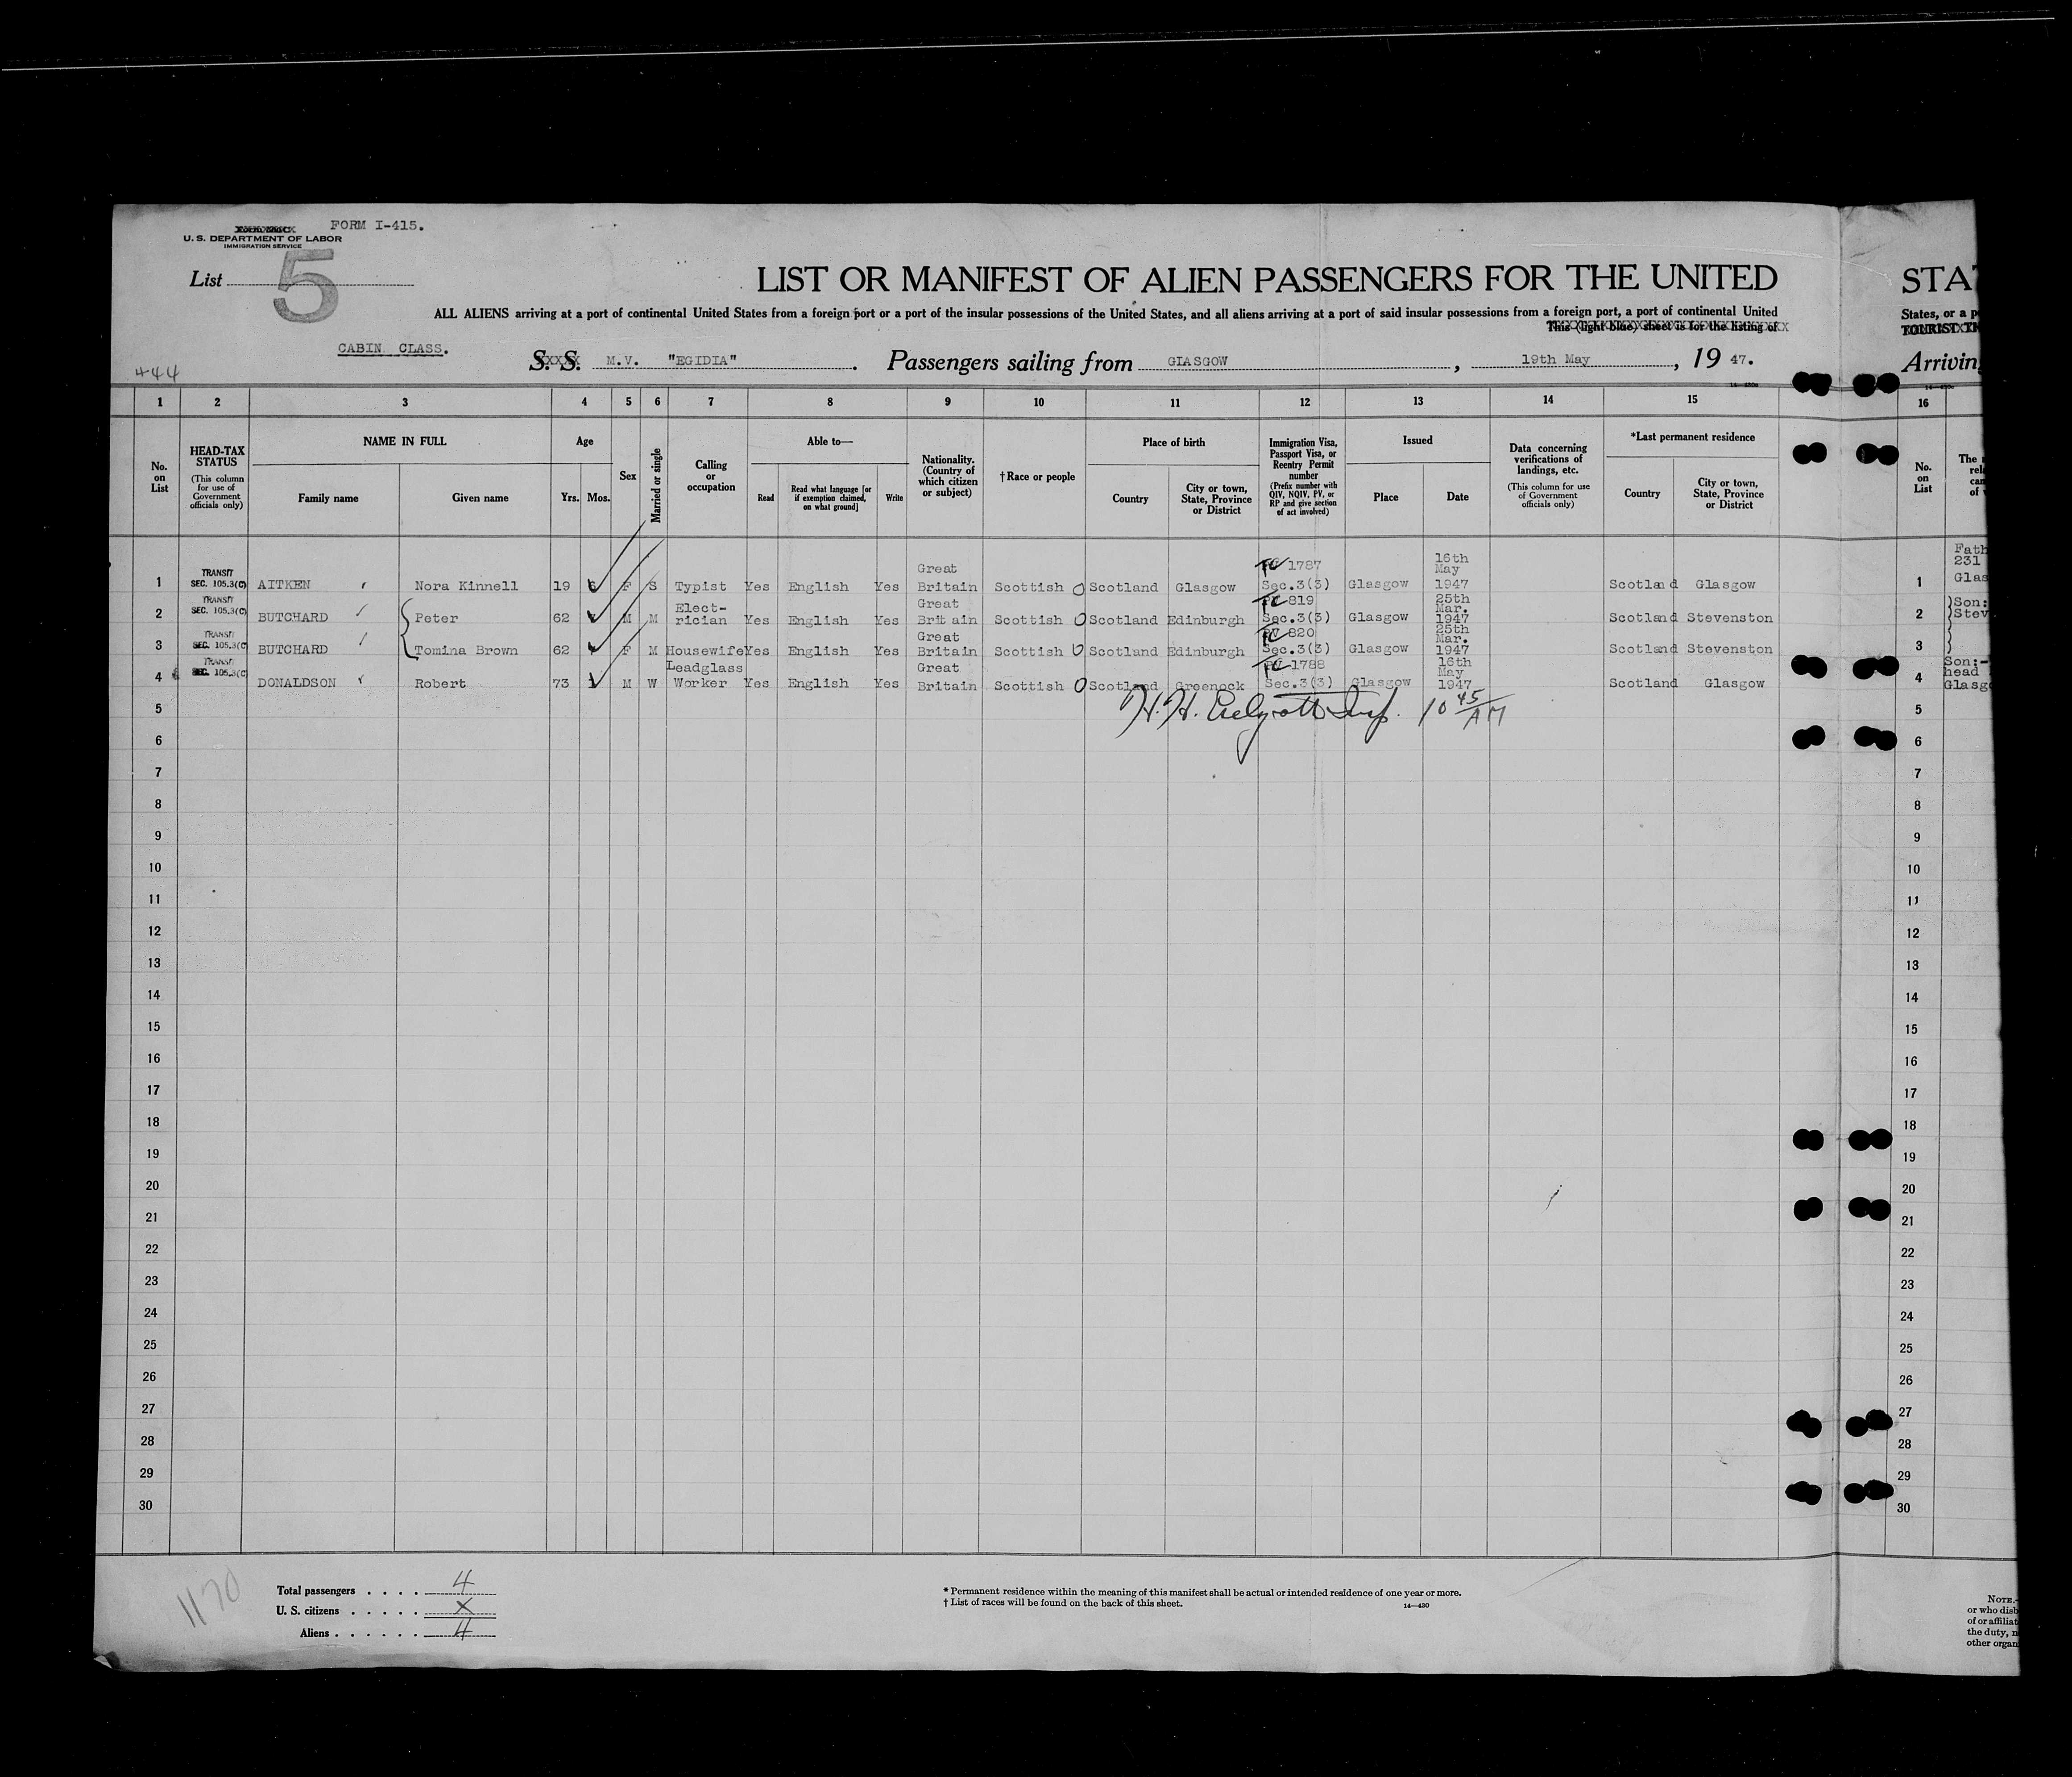 FORM I-415.
U. S. DEPARTMENT OF LABOR
IMMIGRATION SERVICE
List 5
LIST OR MANIFEST OF ALIEN PASSENGERS FOR THE UNITED
STA
ALL ALIENS arriving at a port of continental United States from a foreign port or a port of the insular possessions of the United States, and all aliens arriving at a port of said insular possessions from a foreign port, a port of continental United
States, or a p
This (light blue) sheet is for the listing of
CABIN CLASS.
444
S. S. M.V. "EGIDIA". Passengers sailing from GLASGOW, 19th May, 19 47.
Arrivin
14—430a
1 2 3 4 5 6 7 8 9 10 11 12 13 14 15 16
No. on List
HEAD-TAX STATUS
(This column for use of Government officials only)
NAME IN FULL
Family name
Given name
Age
Yrs. Mos.
Sex
Married or single
Calling or occupation
Able to—
Read
Read what language [or if exemption claimed, on what ground]
Write
Nationality. (Country of which citizen or subject)
†Race or people
Place of birth
Country
City or town, State, Province or District
Immigration Visa, Passport Visa, or Reentry Permit number
(Prefix number with QIV, NQIV, PV, or RP and give section of act involved)
Issued
Place
Date
Data concerning verifications of landings, etc.
(This column for use of Government officials only)
*Last permanent residence
Country
City or town, State, Province or District
No. on List
1 TRANSIT SEC. 105.3(C) AITKEN Nora Kinnell 19 F S Typist Yes English Yes Great Britain Scottish Scotland Glasgow 1787 Sec.3(3) Glasgow 16th May 1947 Scotland Glasgow 1 Fath 231 Glas
2 TRANSIT SEC. 105.3(C) BUTCHARD Peter 62 M M Elect-rician Yes English Yes Great Britain Scottish Scotland Edinburgh 819 Sec.3(3) Glasgow 25th Mar. 1947 Scotland Stevenston 2 Son: Stev
3 TRANSIT SEC. 105.3(C) BUTCHARD Tomina Brown 62 F M Housewife Yes English Yes Great Britain Scottish Scotland Edinburgh PV 820 Sec.3(3) Glasgow 25th Mar. 1947 Scotland Stevenston 3
4 TRANSIT SEC. 105.3(C) DONALDSON Robert 73 M W Leadglass Worker Yes English Yes Great Britain Scottish Scotland Greenock PV 1788 Sec.3(3) Glasgow 16th May 1947 Scotland Glasgow 4 Son:- head Glasg
5 H.H. Insp. 10 45/AM 5
6 6
7 7
8 8
9 9
10 10
11 11
12 12
13 13
14 14
15 15
16 16
17 17
18 18
19 19
20 20
21 21
22 22
23 23
24 24
25 25
26 26
27 27
28 28
29 29
30 30
1170
Total passengers . . . . 4
U. S. citizens . . . . . X
Aliens . . . . . . 4
* Permanent residence within the meaning of this manifest shall be actual or intended residence of one year or more.
† List of races will be found on the back of this sheet.
14—430
NOTE.-
or who disb
of or affiliat
the duty, n
other organ